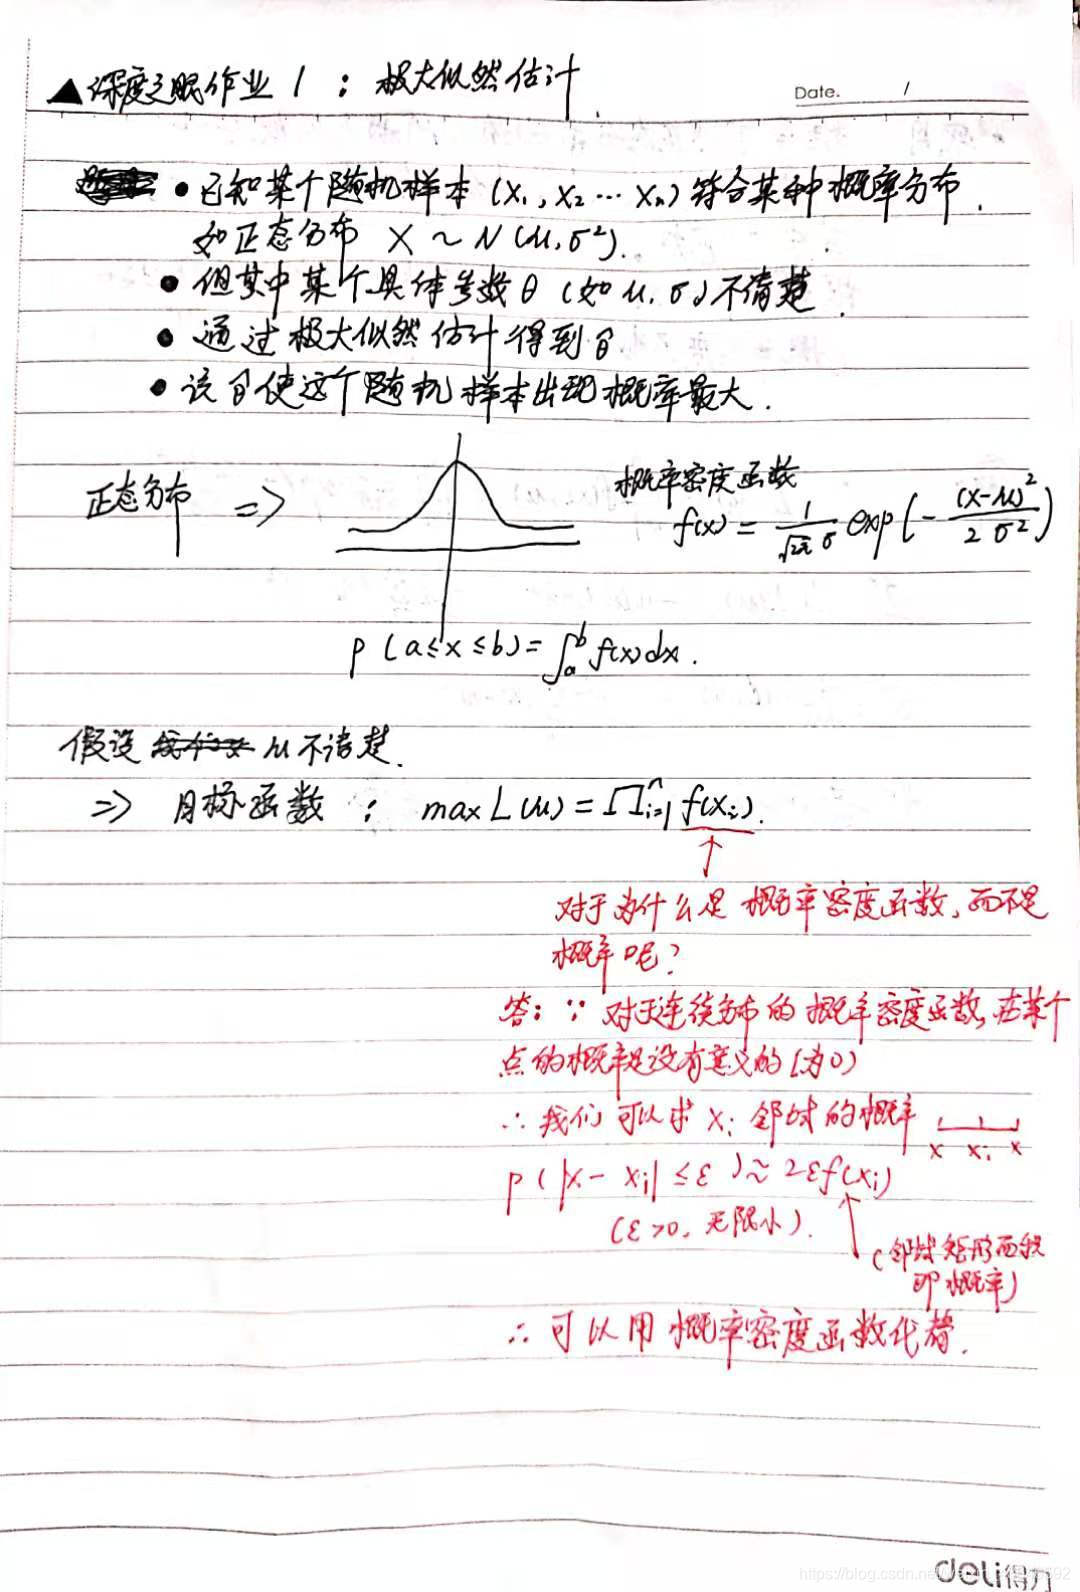 ▲深度之眼作业1：极大似然估计
Date. /
• 已知某个随机样本 (X₁, X₂ … Xₙ) 符合某种概率分布.
如正态分布 X ~ N(μ, σ²).
• 但其中某个具体参数θ (如 μ, σ) 不清楚.
• 通过极大似然估计得到θ
• 该θ使这个随机样本出现概率最大.
正态分布 =>
概率密度函数
f(x) = 1/(√2π σ) exp(-(x-μ)²/(2σ²))
P(a≤x≤b) = ∫ₐᵇ f(x)dx.
假设 μ不清楚.
=> 目标函数: max L(μ) = ∏ⁿᵢ₌₁ f(xᵢ).
对于为什么是概率密度函数, 而不是
概率呢?
答: ∵ 对于连续分布的概率密度函数, 在某个
点的概率是没有意义的 (为0)
∴ 我们可以求 xᵢ 邻域的概率
x xᵢ x
P(|x - xᵢ| ≤ ε) ≈ 2εf(xᵢ)
(ε>0, 无限小).
(邻域矩形面积
即概率)
∴ 可以用概率密度函数代替.
deli得力